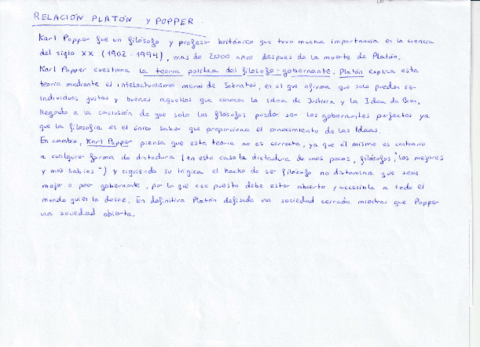 RELACIÓN PLATÓN Y POPPER
Karl Popper fue un filósofo y profesor británico que tuvo mucha importancia en la ciencia
del siglo XX (1902-1994), más de 2000 años después de la muerte de Platón.
Karl Popper cuestiona la teoría política del filósofo-gobernante. Platón expuso esta
teoría mediante el intelectualismo moral de Sócrates, en el que afirma que solo pueden ser
individuos justos y buenos aquellos que conocen la idea de Justicia y la Idea de Bien,
llegando a la conclusión de que solo los filósofos pueden ser los gobernantes perfectos ya
que la filosofía es el único saber que proporciona el conocimiento de las Ideas.
En cambio, Karl Popper piensa que esta teoría no es correcta, ya que él mismo es contrario
a cualquier forma de dictadura (en este caso la dictadura de unos pocos, filósofos, "los mejores
y más sabios") y siguiendo su lógica el hecho de ser filósofo no distamina que seas
mejor o peor gobernante, por lo que ese puesto debe estar abierto y accesible a todo el
mundo quien lo desee. En definitiva Platón defiende una sociedad cerrada mientras que Popper
una sociedad abierta.